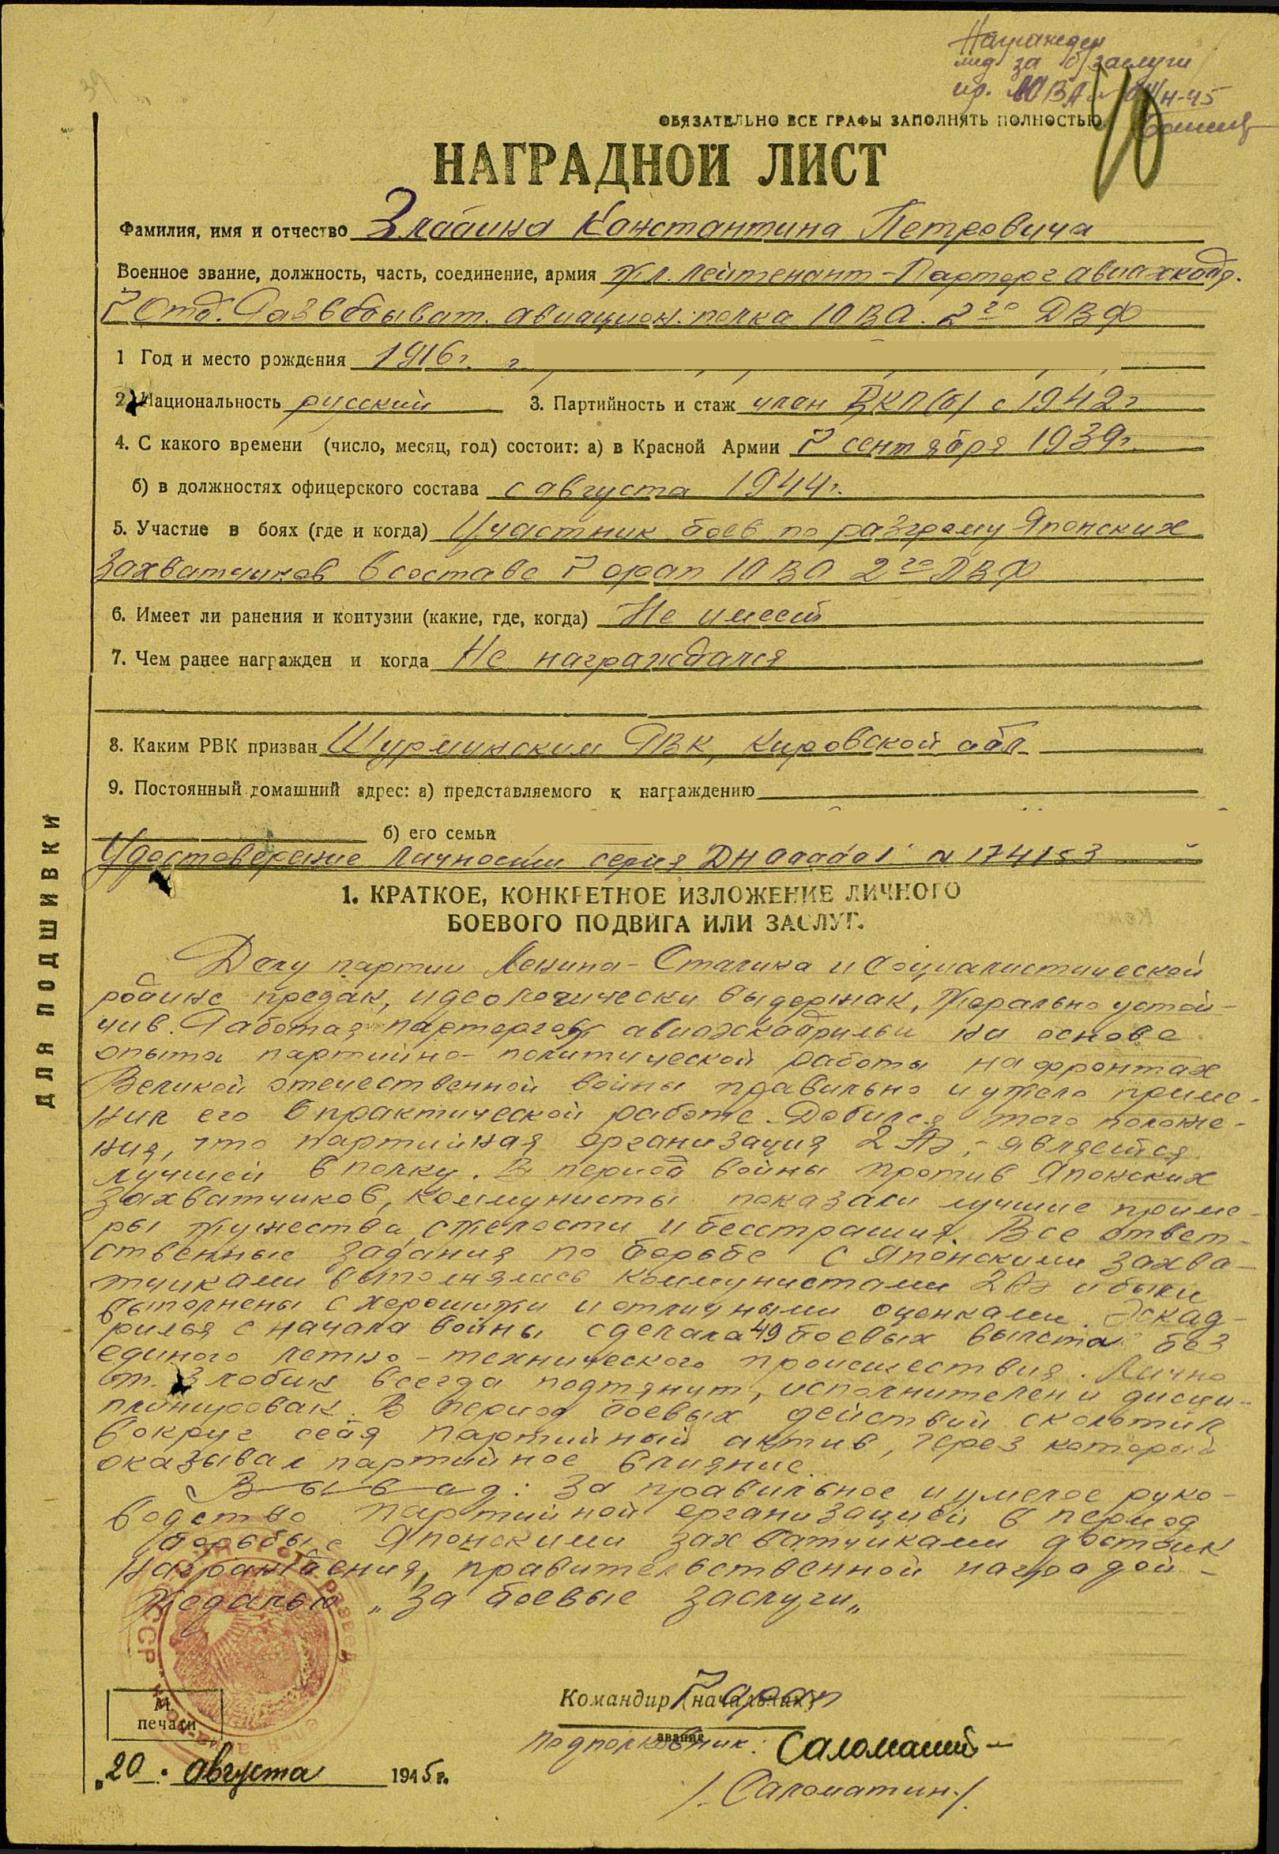 Награжден
мед за б/заслуги
пр.
ОБЯЗАТЕЛЬНО ВСЕ ГРАФЫ ЗАПОЛНЯТЬ ПОЛНОСТЬЮ
НАГРАДНОЙ ЛИСТ
Фамилия, имя и отчество Злобина Константина Петровича
Военное звание, должность, часть, соединение, армия мл. лейтенант - Парторг авиаэскадр.
7 Отд. Разведыват. авиацион. полка 10 ВА. 2го ДВФ
1 Год и место рождения 1916г.
2. Национальность русский 3. Партийность и стаж член ВКП(б) с 1942г
4. С какого времени (число, месяц, год) состоит: а) в Красной Армии 7 сентября 1939г.
б) в должностях офицерского состава с августа 1944г.
5. Участие в боях (где и когда) Участник боев по разгрому Японских
захватчиков в составе 7 орап 10 ВА 2го ДВФ
6. Имеет ли ранения и контузии (какие, где, когда) Не имеет
7. Чем ранее награжден и когда Не награждался
8. Каким РВК призван Шурминским РВК, Кировской обл.
9. Постоянный домашний адрес: а) представляемого к награждению
б) его семьи
Удостоверение личности серия № 174153
ДЛЯ ПОДШИВКИ
1. КРАТКОЕ, КОНКРЕТНОЕ ИЗЛОЖЕНИЕ ЛИЧНОГО
БОЕВОГО ПОДВИГА ИЛИ ЗАСЛУГ.
Делу партии Ленина - Сталина и социалистической
родине предан, идеологически выдержан, морально устой-
чив. Работая парторгом авиаэскадрильи на основе
опыта партийно-политической работы на фронтах
Великой отечественной войны правильно и умело приме-
нил его в практической работе. Добился того положе-
ния, что партийная организация 2 АЭ, - является
лучшей в полку. В период войны против Японских
захватчиков, коммунисты показали лучшие приме-
ры мужества, смелости и бесстрашия. Все ответ-
ственные задания по борьбе с Японскими захва-
тчиками выполнялись коммунистами 2 АЭ и были
выполнены с хорошими и отличными оценками. Эскад-
рилья с начала войны сделала 49 боевых вылета без
единого летно-технического происшествия. Лично
т. Злобин всегда подтянут, исполнителен и дисци-
плинирован. В период боевых действий сколотил
вокруг себя партийный актив, через который
оказывал партийное влияние.
Вывод: За правильное и умелое руко-
водство партийной организацией в период
борьбы с Японскими захватчиками достоин
награждения, правительственной наградой -
медалью „За боевые заслуги„
М.
печати
Командир (начальник) 7 орап
звание
Подполковник: Саломатин
/. Саломатин./
„20 " августа 1945г.